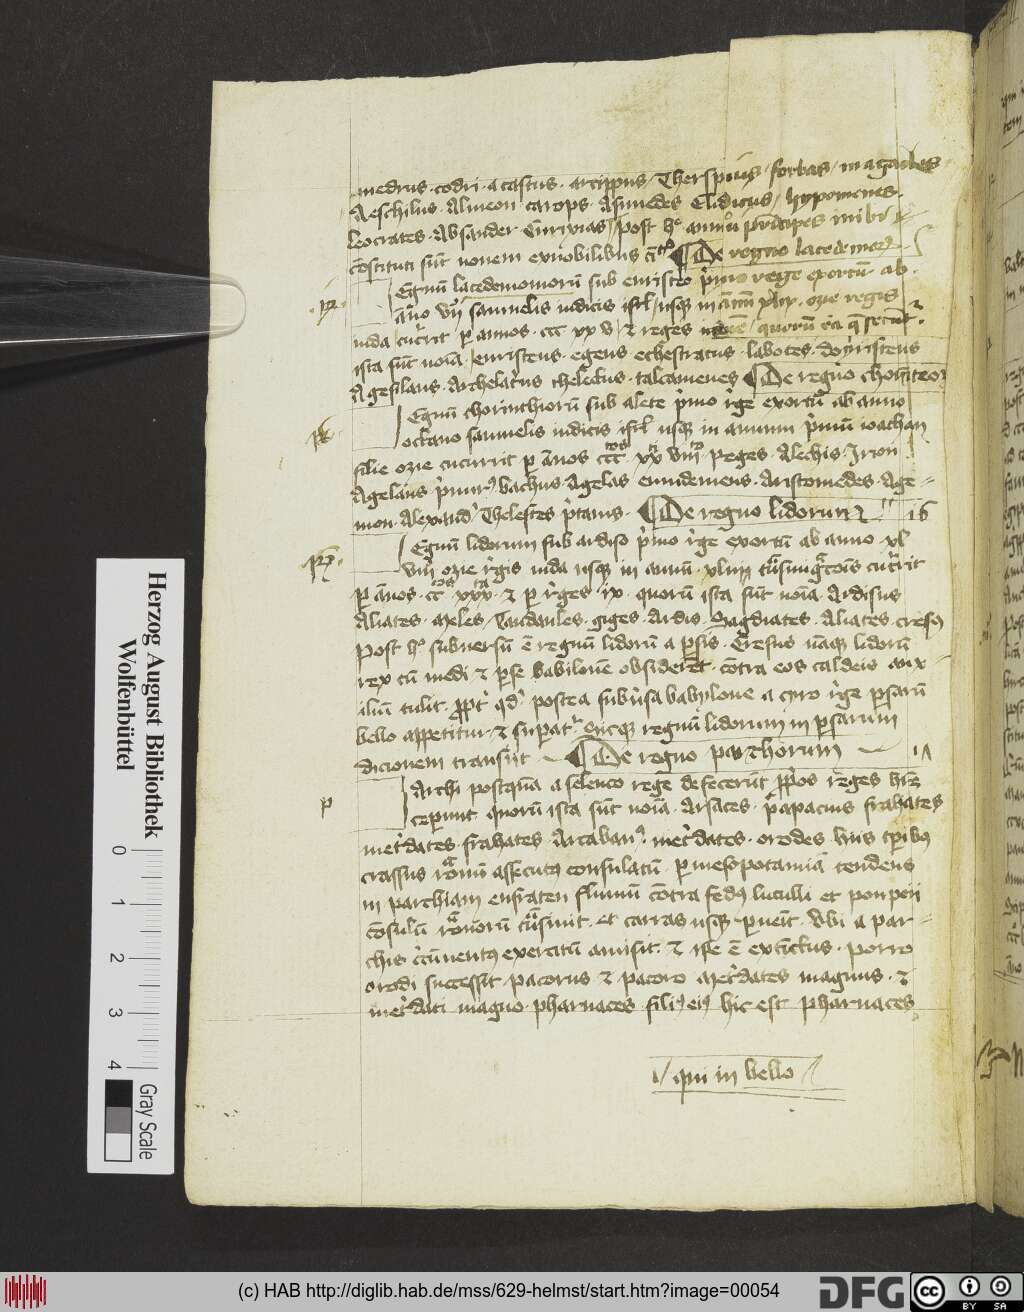 medrus codri acastus arcippus Therspius forbas magacles
Aeschilus Almeon carops Asimedes Elidicus hypomenes
leocrates Absander Eurixias post h° annui principes mibi
constituti sunt nouem ex nobilibus De regno lacedemor
Egnum lacedemoniorum sub euristeo primo rege exortum ab
anno samuelis iudicis israel usque in annum ozie regis
iuda cucurrit per annos ccc xx v et reges quorum
ista sunt noia euristeus egeus echestratus labotes doyristeus
Agesilaus Archelaus thelectus talcamenes De regno chorinteor
Egnum chorinthiorum sub alete primo rege exortum ab anno
octauo samuelis iudicis israel usque in annum primum ioachan
filie ozie cucurrit per annos ccc xx iiii Reges Alechis Irion
Agelaus primus bachus Agelas eumdemens Aristomedes Age=
mon Alexand Thelestes pritanis De regno lidorum 16
Egnum lidorum sub ardiso primo rege exortum ab anno xl
viii ozie regis iuda usque in annum xliiii transmigrationis cucurrit
per annos cc xxx et per reges ix quorum ista sunt noia Ardisus
Aliates Meles Candaules giges Ardis Sagdiates Aliates cresus
Post h° subuersum est regnum lidorum a persis Cresus namque lidorum
rex cum medi et perse babilonem obsiderent contra eos caldeis aux=
ilium tulit propter quod postea subuersa babylone a cyro rege persarum
bello appetitur et superatur sicque regnum lidorum in persarum
dicionem transiit De regno parthorum 17
Archi postquam a seleuco rege defecerunt proprios reges hnt
ceperunt quorum ista sunt noia Arsaces papacius frahates
metridates frahates Arcabanus metridates orodes huius temporibus
crassus romanum assecutus consulatum per mesopotamia tendens
in parchiam eufraten fluuium contra fedus luculli et pompeii
consulum romanorum transiuit et carras usque peruenit Vbi a par=
chis circumuentus exercitum amisit et ipse est extinctus porro
orodi successit pacorus et pacoro Metridates magnus et
metridati magno pharnaces filius eius hic est pharnaces
qui in bello
Herzog August Bibliothek
Wolfenbüttel
0 1 2 3 4
Gray Scale
(c) HAB http://diglib.hab.de/mss/629-helmst/start.htm?image=00054
DFG
cc BY SA